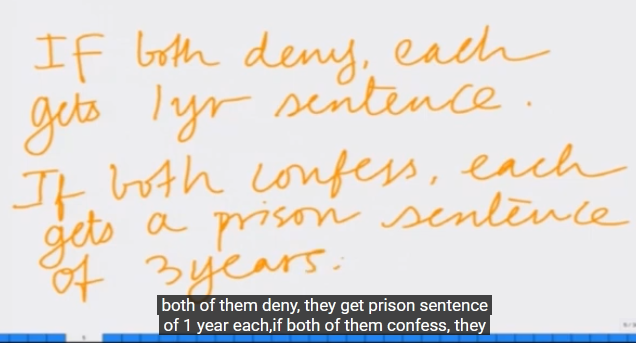 If both deny, each
gets 1yr sentence.
If both confess, each
gets a prison sentence
of 3 years.
both of them deny, they get prison sentence
of 1 year each,if both of them confess, they